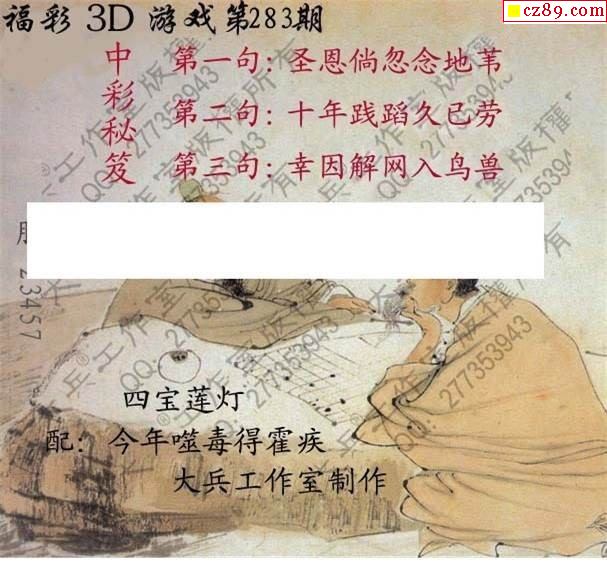 福彩 3D 游戏第283期
cz89.com
中彩秘笈
第一句：圣恩倘忽念地苇
第二句：十年践蹈久已劳
第三句：幸因解网入鸟兽
23457
四宝莲灯
配：今年噬毒得霍疾
大兵工作室制作
大兵®工作室版權所有
QQ：277353943